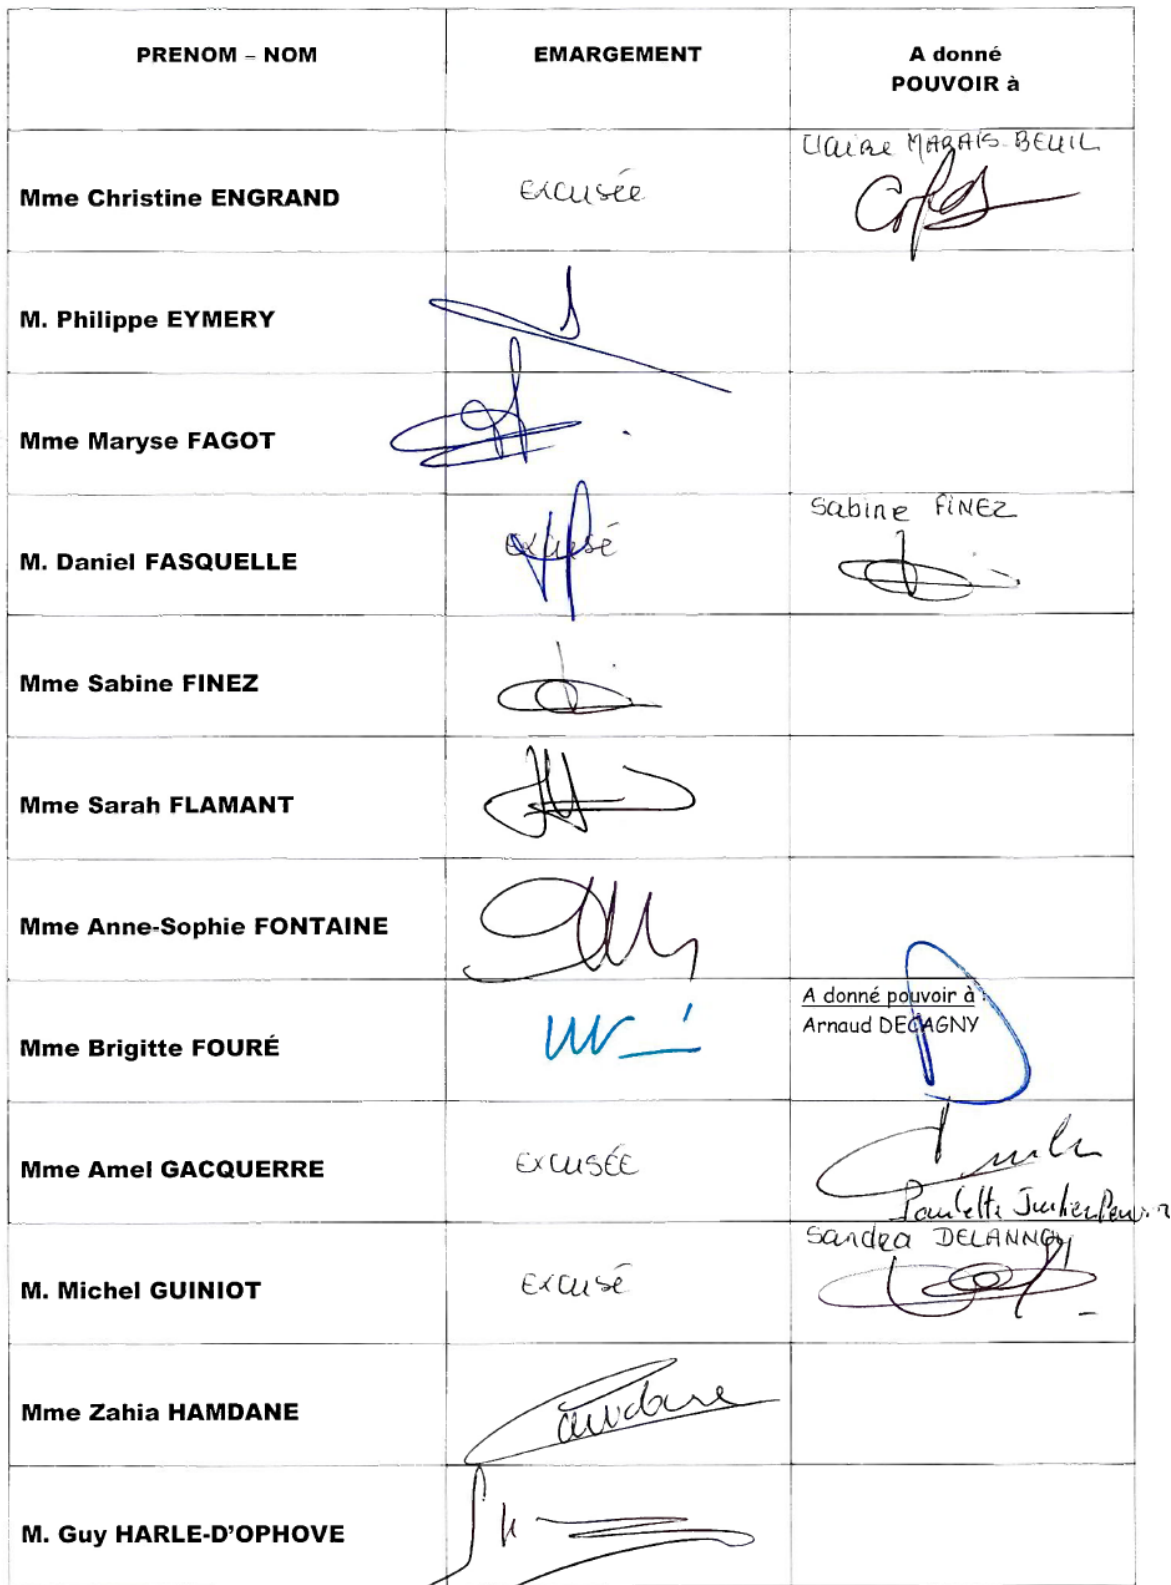 PRENOM – NOM
EMARGEMENT
A donné
POUVOIR à
Mme Christine ENGRAND
Excusée
Claire MARAIS-BEUIL
M. Philippe EYMERY
Mme Maryse FAGOT
M. Daniel FASQUELLE
Excusé
Sabine FINEZ
Mme Sabine FINEZ
Mme Sarah FLAMANT
Mme Anne-Sophie FONTAINE
Mme Brigitte FOURÉ
A donné pouvoir à :
Arnaud DECAGNY
Mme Amel GACQUERRE
EXCUSÉE
Paulette
M. Michel GUINIOT
Excusé
Sandra DELANNOY
Mme Zahia HAMDANE
M. Guy HARLE-D'OPHOVE